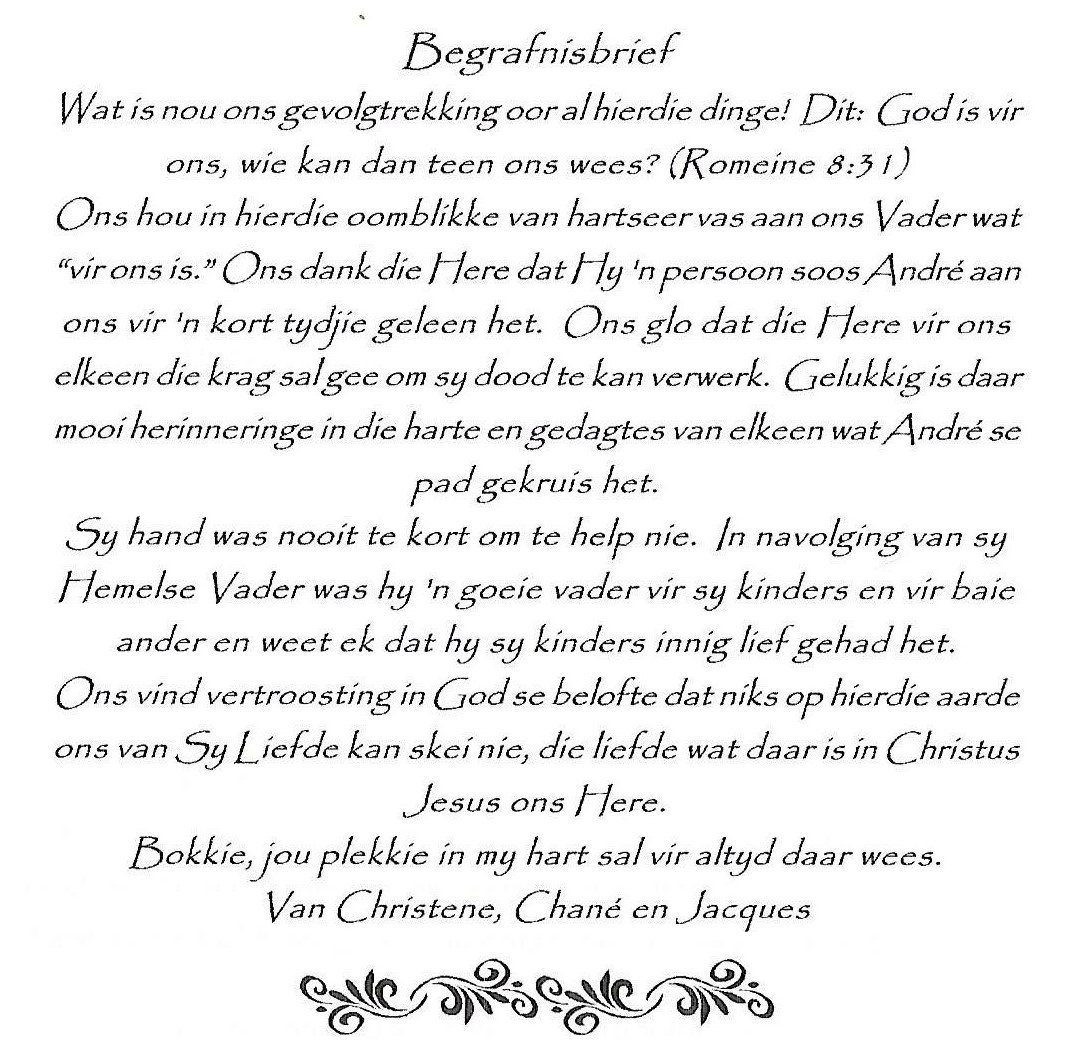 Begrafnisbrief
Wat is nou ons gevolgtrekking oor al hierdie dinge! Dit: God is vir
ons, wie kan dan teen ons wees? (Romeine 8:31)
Ons hou in hierdie oomblikke van hartseer vas aan ons Vader wat
“vir ons is.” Ons dank die Here dat Hy 'n persoon soos André aan
ons vir 'n kort tydjie geleen het. Ons glo dat die Here vir ons
elkeen die krag sal gee om sy dood te kan verwerk. Gelukkig is daar
mooi herinneringe in die harte en gedagtes van elkeen wat André se
pad gekruis het.
Sy hand was nooit te kort om te help nie. In navolging van sy
Hemelse Vader was hy 'n goeie vader vir sy kinders en vir baie
ander en weet ek dat hy sy kinders innig lief gehad het.
Ons vind vertroosting in God se belofte dat niks op hierdie aarde
ons van Sy Liefde kan skei nie, die liefde wat daar is in Christus
Jesus ons Here.
Bokkie, jou plekkie in my hart sal vir altyd daar wees.
Van Christene, Chané en Jacques